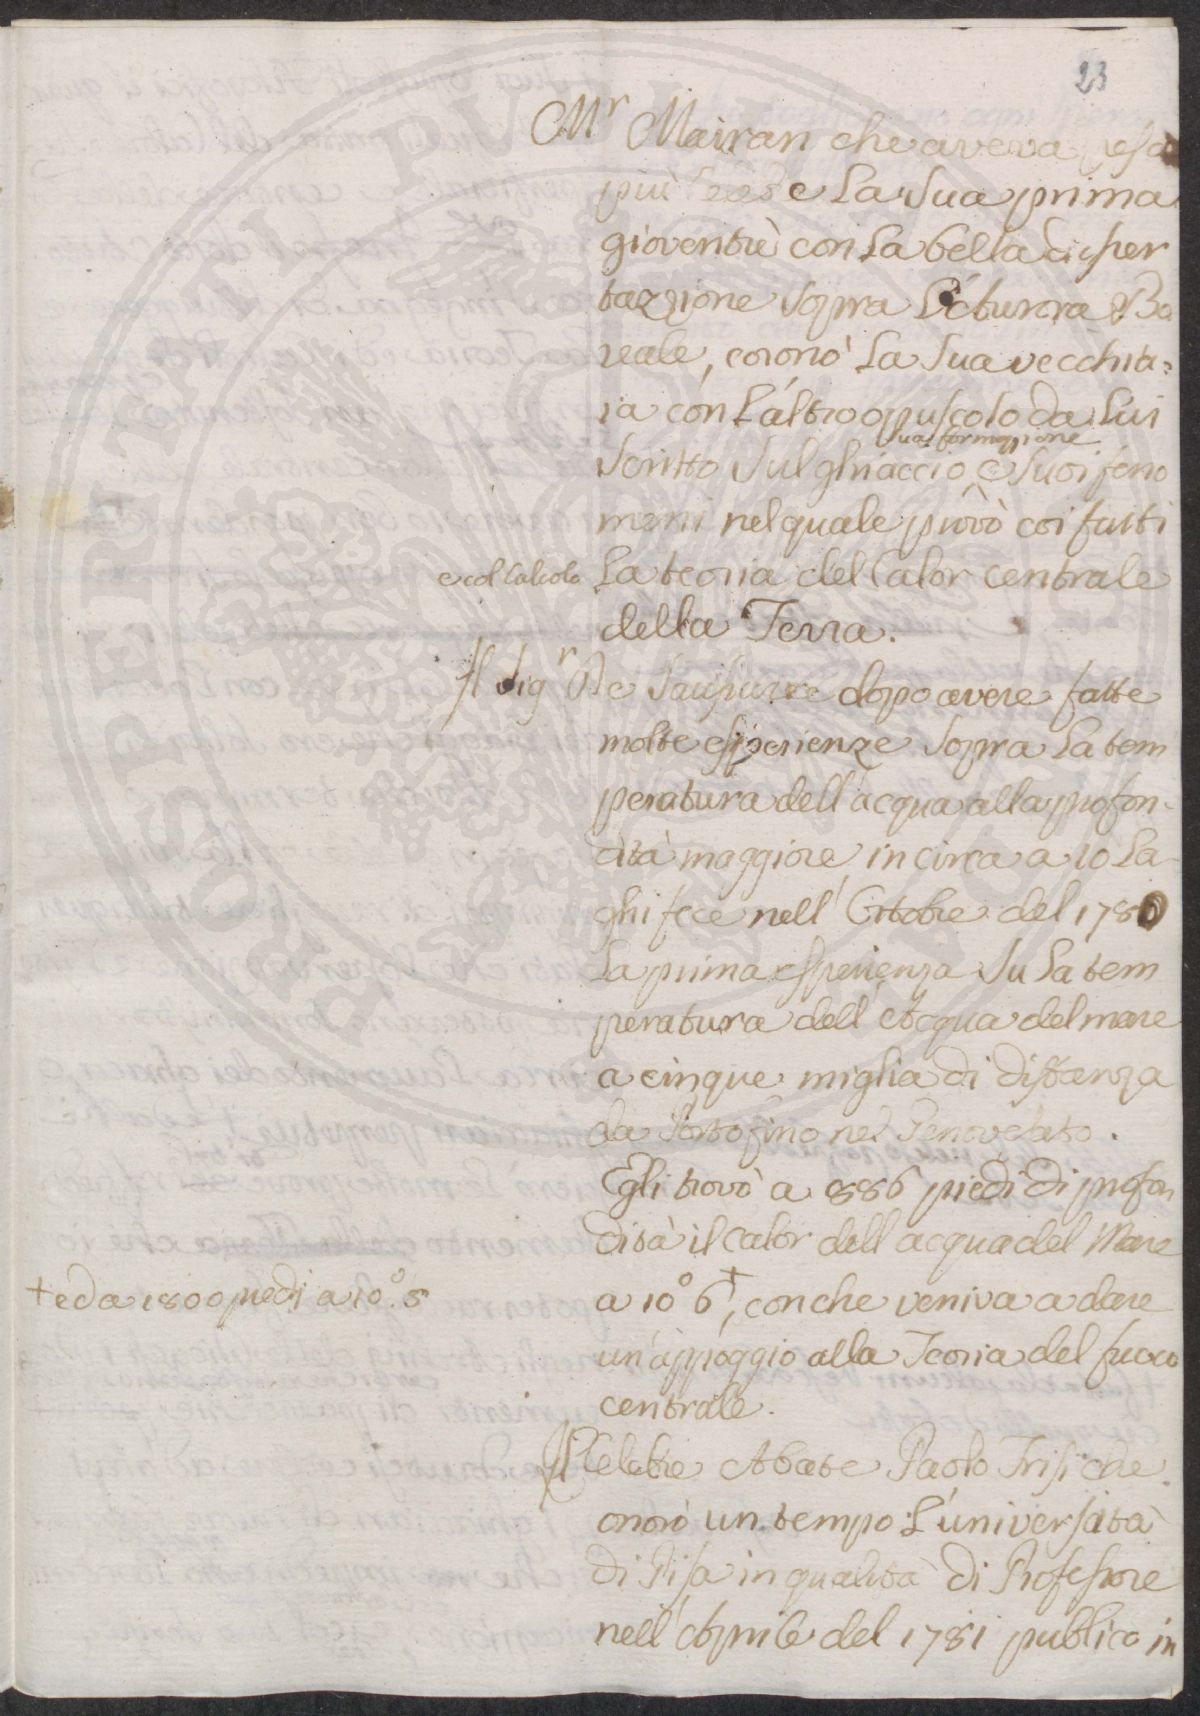 23
Mr Mairan che aveva resa
più celebre La sua prima
gioventù con La bella disser
tazzione sopra L'aturora Bo
reale, coronò La sua vecchia
ia con L'altro opuscolo da Lui
sua formazzione
scritto sul ghiaccio, e suoi feno
meni nel quale provò coi fatti
e col Calcolo La teoria del Calor centrale
della Terra.
Il Sigr De Saussure dopo avere fatte
molte esperienze sopra La tem
peratura dell'acqua alla profon-
dità maggiore in circa a 10 La-
ghi fece nell'Ottobre del 1780
La prima esperienza su La tem
peratura dell'Acqua del mare
a cinque miglia di distanza
da Portofino nel Genovesato.
Egli trovò a 886 piedi di profon
dità il Calor dell'acqua del Mare
+ e da 1800 piedi a 10.° 5 a 10° 6+, con che veniva a dare
un'appoggio alla Teoria del fuoco
centrale.
Il Celebre Abate Paolo Frisi che
onorò un tempo L'universita
di Pisa in qualità di Professore
nell'Aprile del 1781 publico in